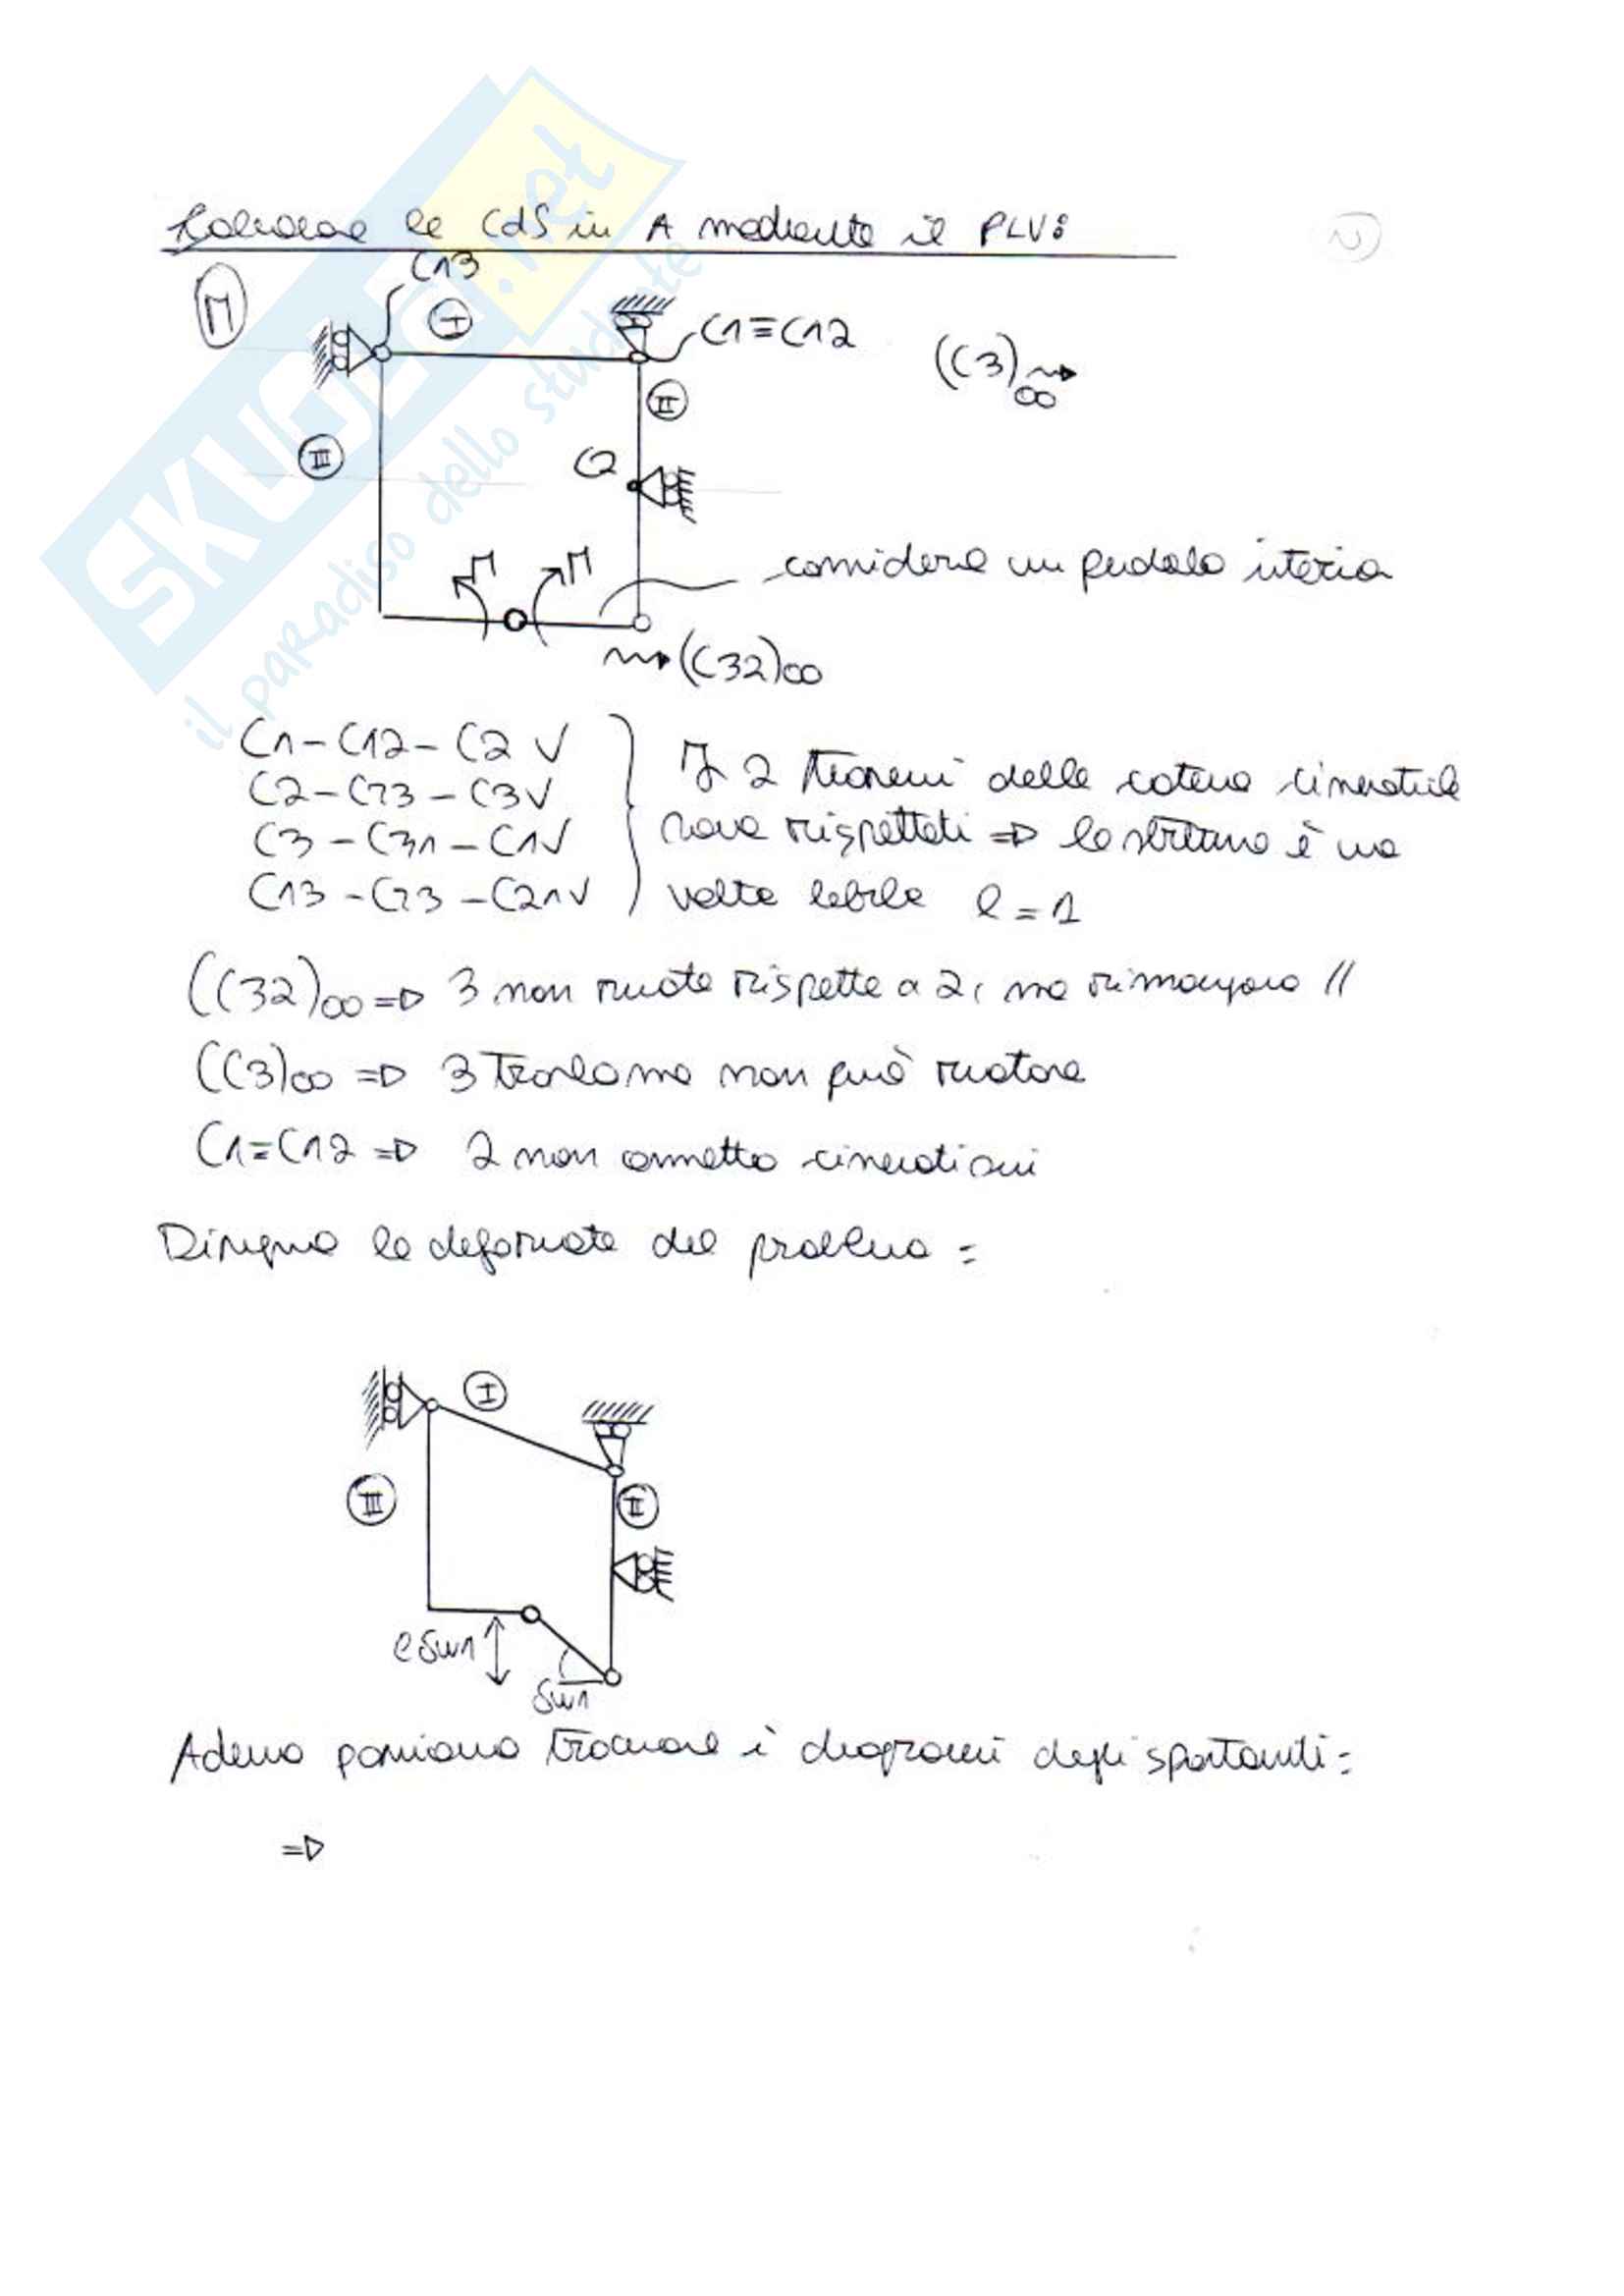 Calcolare le CdS in A mediante il PLV:
2
M
C13
I
C1≡C12
(C3)∞
II
III
C2
M M
considero un pendolo
(C32)∞
C1-C12-C2 √
C2-C23-C3 √
C3-C31-C1 √
C13-C23-C21 √
I 2 teoremi delle catene cinematiche
sono rispettati => la struttura è una
volta labile l=1
(C32)∞ => 3 non ruota rispetto a 2, ma rimangono //
(C3)∞ => 3 trasla ma non può ruotare
C1=C12 => 2 non ammette cinematismi
Disegno la deformata del problema =
I
III
II
lδw1
δw1
Adesso possiamo trovare i diagrammi degli spostamenti =
=>
SKUOLA.net
il paradiso dello studente